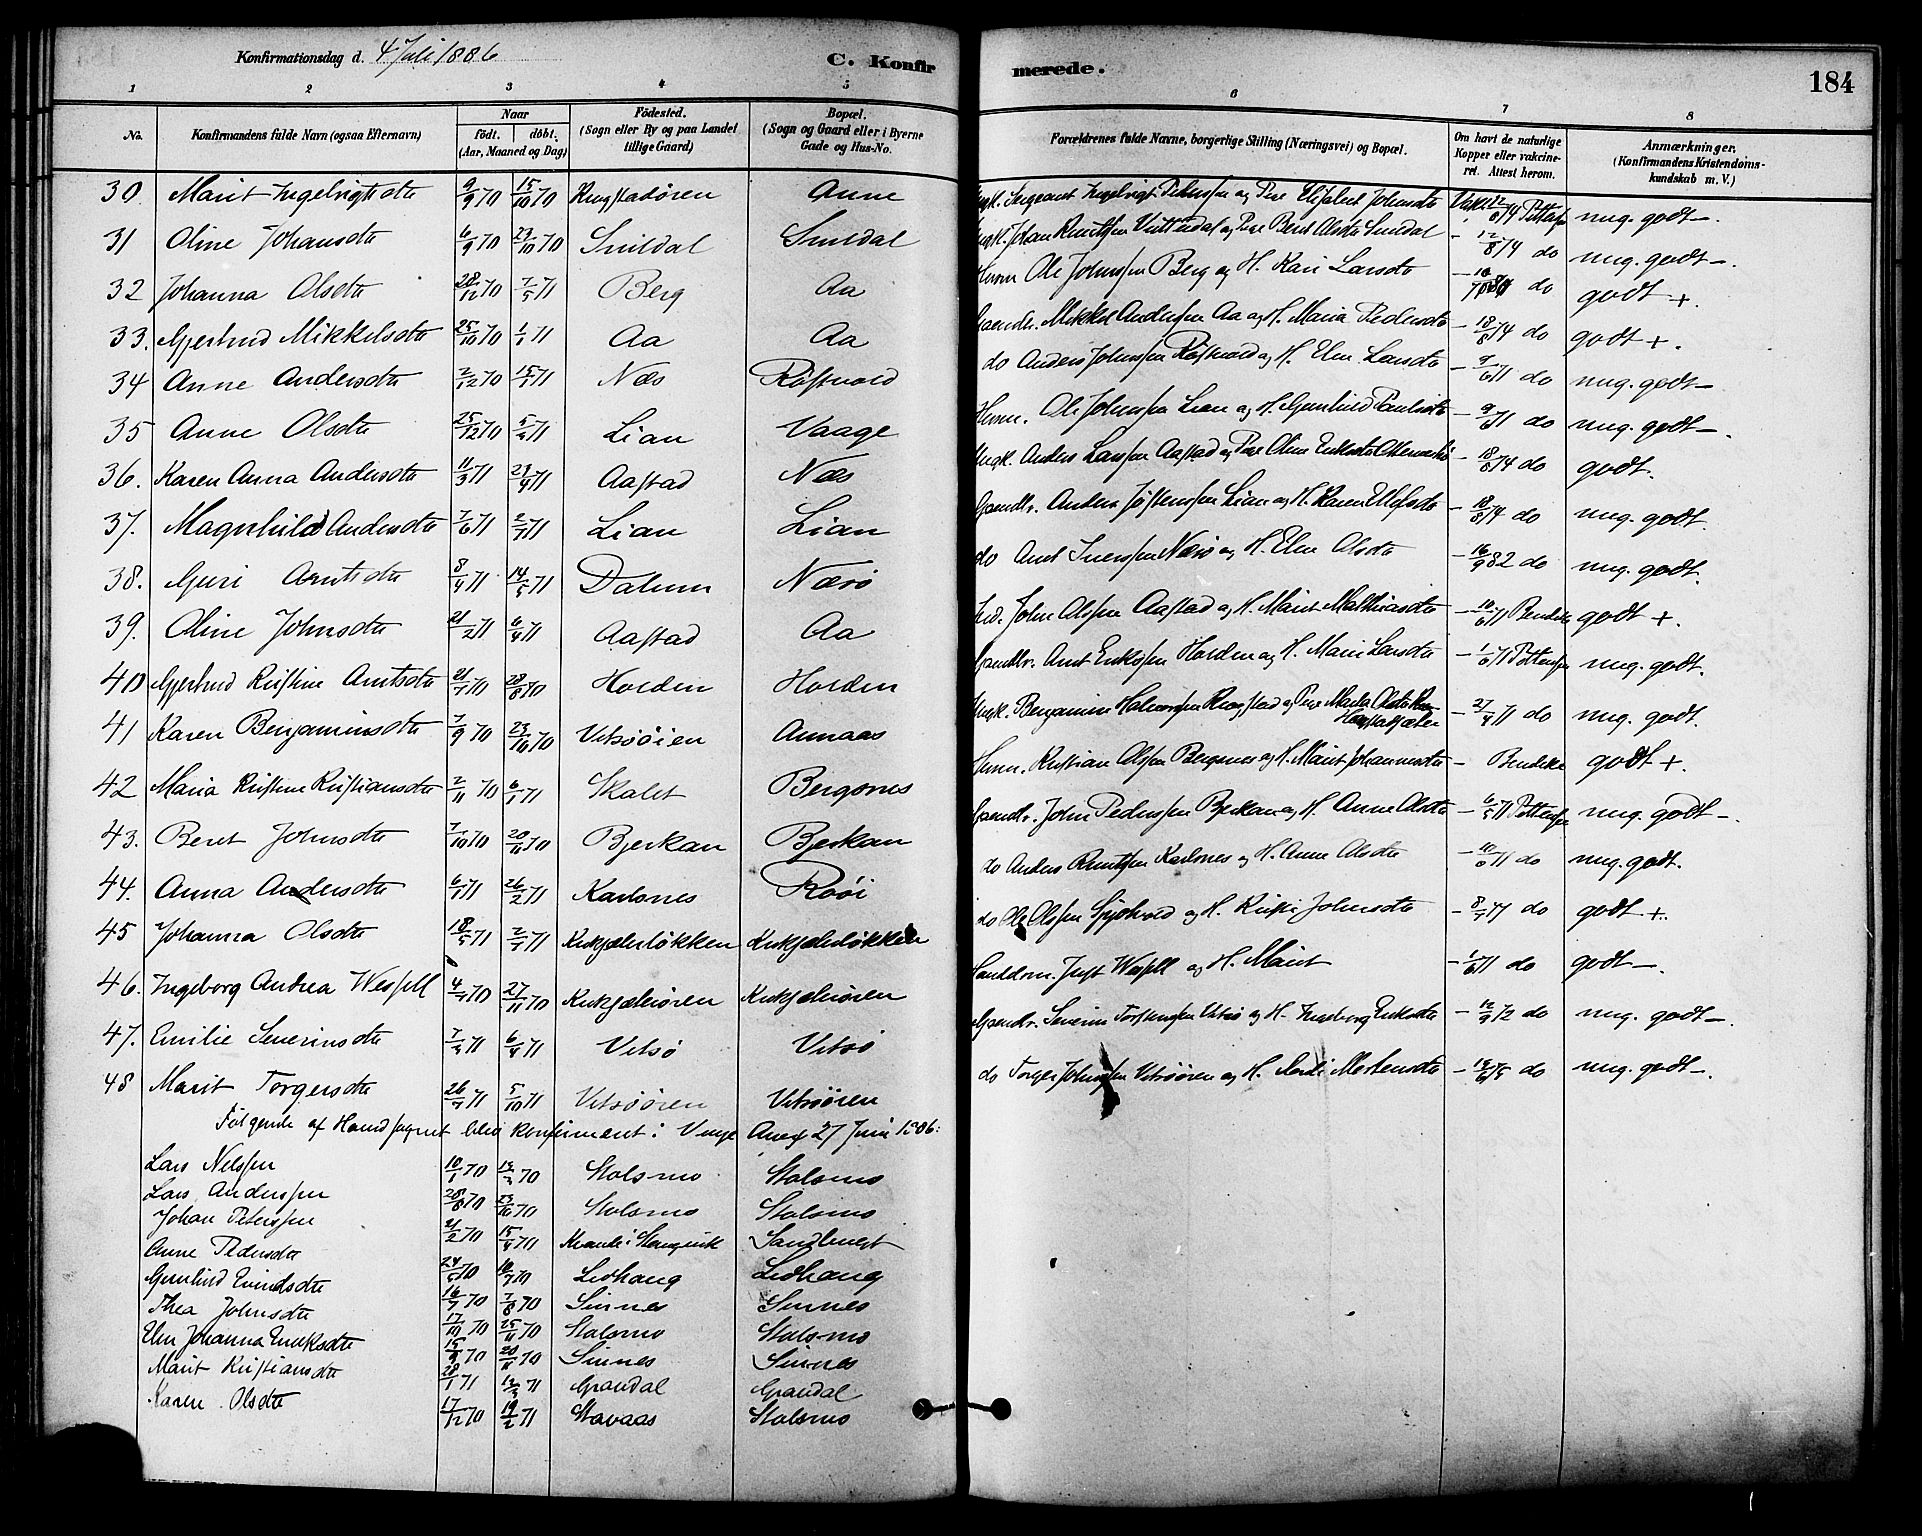 Konfirmationsdag d. 4 Juli 1886
C. Konfirmerede.
184
1 2 3 4 5 6 7 8
No. Konfirmandens fulde Navn (ogsaa Efternavn) Naar födt. döbt. (Aar, Maaned og Dag) Födested. (Sogn eller By og paa Landet tillige Gaard) Bopæl. (Sogn og Gaard eller i Byerne Gade og Hus-No. Forældrenes fulde Navne, borgerlige Stilling (Næringsvei) og Bopæl. Om havt de naturlige Kopper eller vakcineret. Attest herom. Anmærkninger. (Konfirmandens Kristendomskundskab m. V.)
30. Marit Ingebrigtsdtr 9/9 70 15/10 70 Krogstadøren Anne Ungk. Sergeant Ingebrigt Peterssen og Pige Elisabet Johnsdtr Vak. 22/8 74 Petterssen mg. godt -.
31 Oline Johansdtr 6/9 70 23/10 70 Snildal Snildal Ungk. Johan Knutssen og Pige Beret Olsdtr Snildal - 12/8 74 do mg. godt -.
32 Johanna Olsdtr 28/12 70 7/5 71 Berg Aa Huusm Ole Johnssen Berg og H. Kari Larsdtr - do godt +
33. Gjertrud Mikkelsdtr 25/10 70 1/1 71 Aa Aa Gaardbr. Mikkel Anderssen Aa og H. Maria Pedersdtr - 18/8 74 do godt +.
34 Anne Andersdtr 2/12 70 15/1 71 Næs Røstvold do Anders Johnssen Røstvold og H. Elen Larsdtr - 9/6 71 do mg. godt -
35 Anne Olsdtr 25/12 70 5/3 71 Lian Vaage Huusm. Ole Johnssen Lian og H. Gunhild Paulsdtr - 9/6 71 do mg. godt -.
36. Karen Anna Andersdtr 11/3 71 29/4 71 Aastad Næs Ungk. Anders Larssen Aastad og Pige Oline Eriksdtr - 18/8 74 do godt.
37. Magnhild Andersdtr 7/6 71 2/7 71 Lian Lian Gaardbr. Anders Jøstenssen Lian og H. Karen Ellefsdtr - 18/8 74 do mg. godt.
38. Guri Arntsdtr 8/4 71 14/5 71 Dalum Nærø do Arnt Iverssen Nærø og H. Elen Olsdtr - 16/9 82 do mg. godt.
39. Oline Johnsdtr 21/2 71 6/4 71 Aastad Aa Ind. John Olssen Aastad og H. Marit Mathiasdtr - 10/6 71 Bendike godt +.
40 Gjertrud Kristine Arntsdtr 21/7 70 28/8 70 Holden Holden Gaardbr. Arnt Erikssen Holden og H. Marit Larsdtr - 1/6 71 Petterssen mg. godt.
41 Karen Benjaminsdtr 7/9 70 23/10 70 Vitsøien Aunaas Ungk. Benjamin Halvorssen Krogstad og Pige Marta Olsdtr - 27/4 71 do mg. godt.
42 Maria Kristine Kristiansdtr 2/11 70 6/1 71 Skalet Bergsnes Huusm. Kristian Olssen Bergsnes og H. Marit Johannesdtr - Bendike godt +.
43. Beret Johnsdtr 7/10 70 20/11 70 Bjerkan Bjerkan Gaardbr. John Pederssen Bjerkan og H. Anne Olsdtr - 6/5 71 Petterssen mg. godt -.
44. Anna Andersdtr 6/1 71 26/2 71 Karlsnes Roøi do Anders Knutssen Karlsnes og H. Anne Olsdtr - 10/6 71 do mg. godt.
45 Johanna Olsdtr 18/5 71 2/7 71 Kirksæterløkken Kirksæterløkken do Ole Olssen og H. Kirsti Johnsdtr - 8/7 71 do godt +.
46. Ingeborg Andrea Wessell 4/7 70 27/11 70 Kirksæterøren Kirksæterøren Just Wessell og H. Marit - 1/6 71 do godt -.
47. Emilie Severinsdtr 7/3 71 6/4 71 Vitsø Vitsø Gaardbr. Severin Torstenssen Vitsø og H. Ingeborg Eriksdtr - 12/9 72 do mg. godt -.
48 Marit Torgersdtr 26/7 71 5/10 71 Vitsøøren Vitsøøren do Torger Johnssen Vitsøøren og H. Mortensdtr - do mg. godt -.
Følgende af Hovedsognet blev konfirmeret i Vinje Anex 27 Juni 1886:
Lars Nelssen 10/1 70 13/3 70 Stolsmo Stolsmo
Lars Anderssen 28/8 70 23/10 70 Stolsmo Stolsmo
Johan Peterssen 21/2 70 15/4 70 Sandbugt
Anne Pedersdtr 24/5 70 10/7 70 Ledhaug Ledhaug
Gunhild Eivindsdtr 16/7 70 7/8 70 Sinnes Sinnes
Thea Johnsdtr 17/10 70 25/11 70 Stolsmo Stolsmo
Elen Johanna Eriksdtr 15/9 70 20/11 70 Sinnes Sinnes
Marit Kristiansdtr 28/1 71 12/3 71 Grandal Grandal
Karen Olsdtr 17/12 70 19/2 71 Stavaas Stolsmo